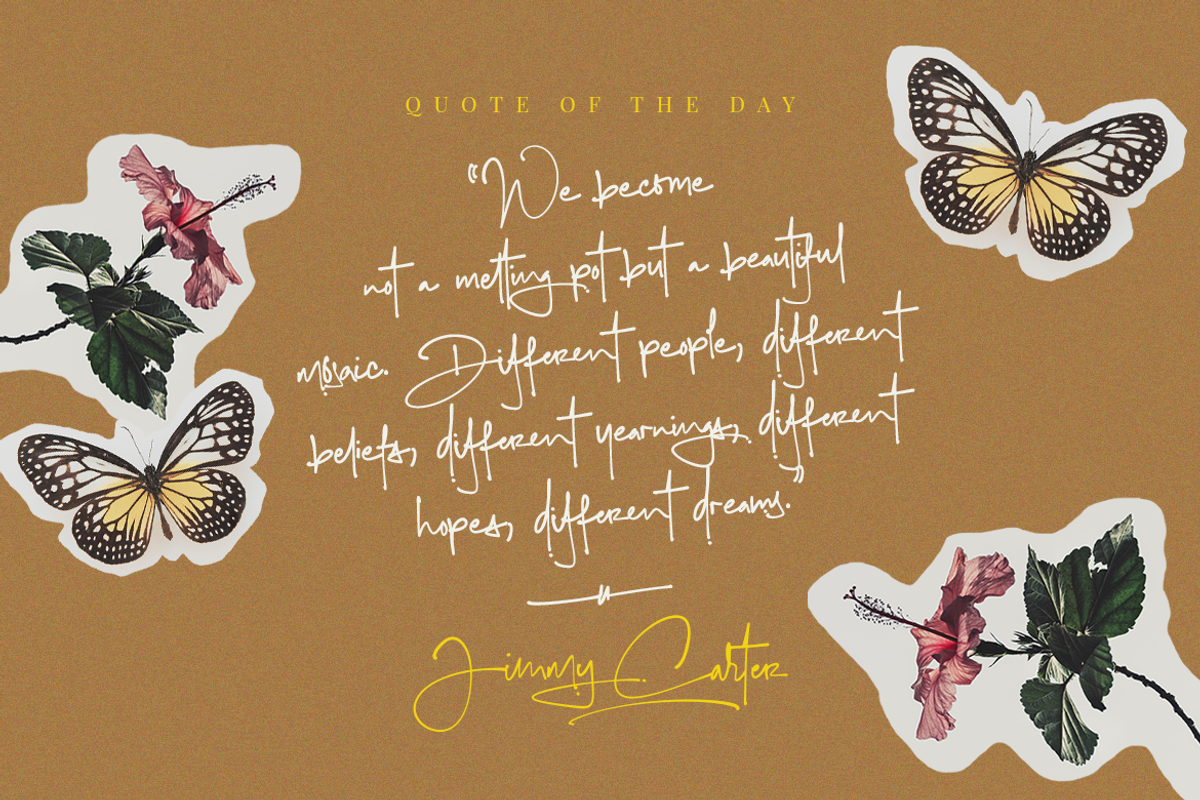 QUOTE OF THE DAY
“We become
not a melting pot but a beautiful
mosaic. Different people, different
beliefs, different yearnings, different
hopes, different dreams.”
Jimmy Carter